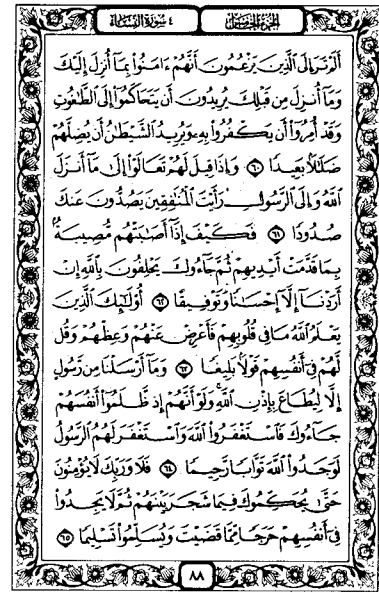 الجزء الخامس
٤ سورة النساء
أَلَمْ تَرَ إِلَى ٱلَّذِينَ يَزْعُمُونَ أَنَّهُمْ ءَامَنُوا۟ بِمَآ أُنزِلَ إِلَيْكَ
وَمَآ أُنزِلَ مِن قَبْلِكَ يُرِيدُونَ أَن يَتَحَاكَمُوٓا۟ إِلَى ٱلطَّٰغُوتِ
وَقَدْ أُمِرُوٓا۟ أَن يَكْفُرُوا۟ بِهِۦ وَيُرِيدُ ٱلشَّيْطَٰنُ أَن يُضِلَّهُمْ
ضَلَٰلًۢا بَعِيدًا ٦٠ وَإِذَا قِيلَ لَهُمْ تَعَالَوْا۟ إِلَىٰ مَآ أَنزَلَ
ٱللَّهُ وَإِلَى ٱلرَّسُولِ رَأَيْتَ ٱلْمُنَٰفِقِينَ يَصُدُّونَ عَنكَ
صُدُودًا ٦١ فَكَيْفَ إِذَآ أَصَٰبَتْهُم مُّصِيبَةٌۢ
بِمَا قَدَّمَتْ أَيْدِيهِمْ ثُمَّ جَآءُوكَ يَحْلِفُونَ بِٱللَّهِ إِنْ
أَرَدْنَآ إِلَّآ إِحْسَٰنًا وَتَوْفِيقًا ٦٢ أُو۟لَٰٓئِكَ ٱلَّذِينَ
يَعْلَمُ ٱللَّهُ مَا فِى قُلُوبِهِمْ فَأَعْرِضْ عَنْهُمْ وَعِظْهُمْ وَقُل
لَّهُمْ فِىٓ أَنفُسِهِمْ قَوْلًۢا بَلِيغًا ٦٣ وَمَآ أَرْسَلْنَا مِن رَّسُولٍ
إِلَّا لِيُطَاعَ بِإِذْنِ ٱللَّهِ ۚ وَلَوْ أَنَّهُمْ إِذ ظَّلَمُوٓا۟ أَنفُسَهُمْ
جَآءُوكَ فَٱسْتَغْفَرُوا۟ ٱللَّهَ وَٱسْتَغْفَرَ لَهُمُ ٱلرَّسُولُ
لَوَجَدُوا۟ ٱللَّهَ تَوَّابًا رَّحِيمًا ٦٤ فَلَا وَرَبِّكَ لَا يُؤْمِنُونَ
حَتَّىٰ يُحَكِّمُوكَ فِيمَا شَجَرَ بَيْنَهُمْ ثُمَّ لَا يَجِدُوا۟
فِىٓ أَنفُسِهِمْ حَرَجًا مِّمَّا قَضَيْتَ وَيُسَلِّمُوا۟ تَسْلِيمًا ٦٥
٨٨